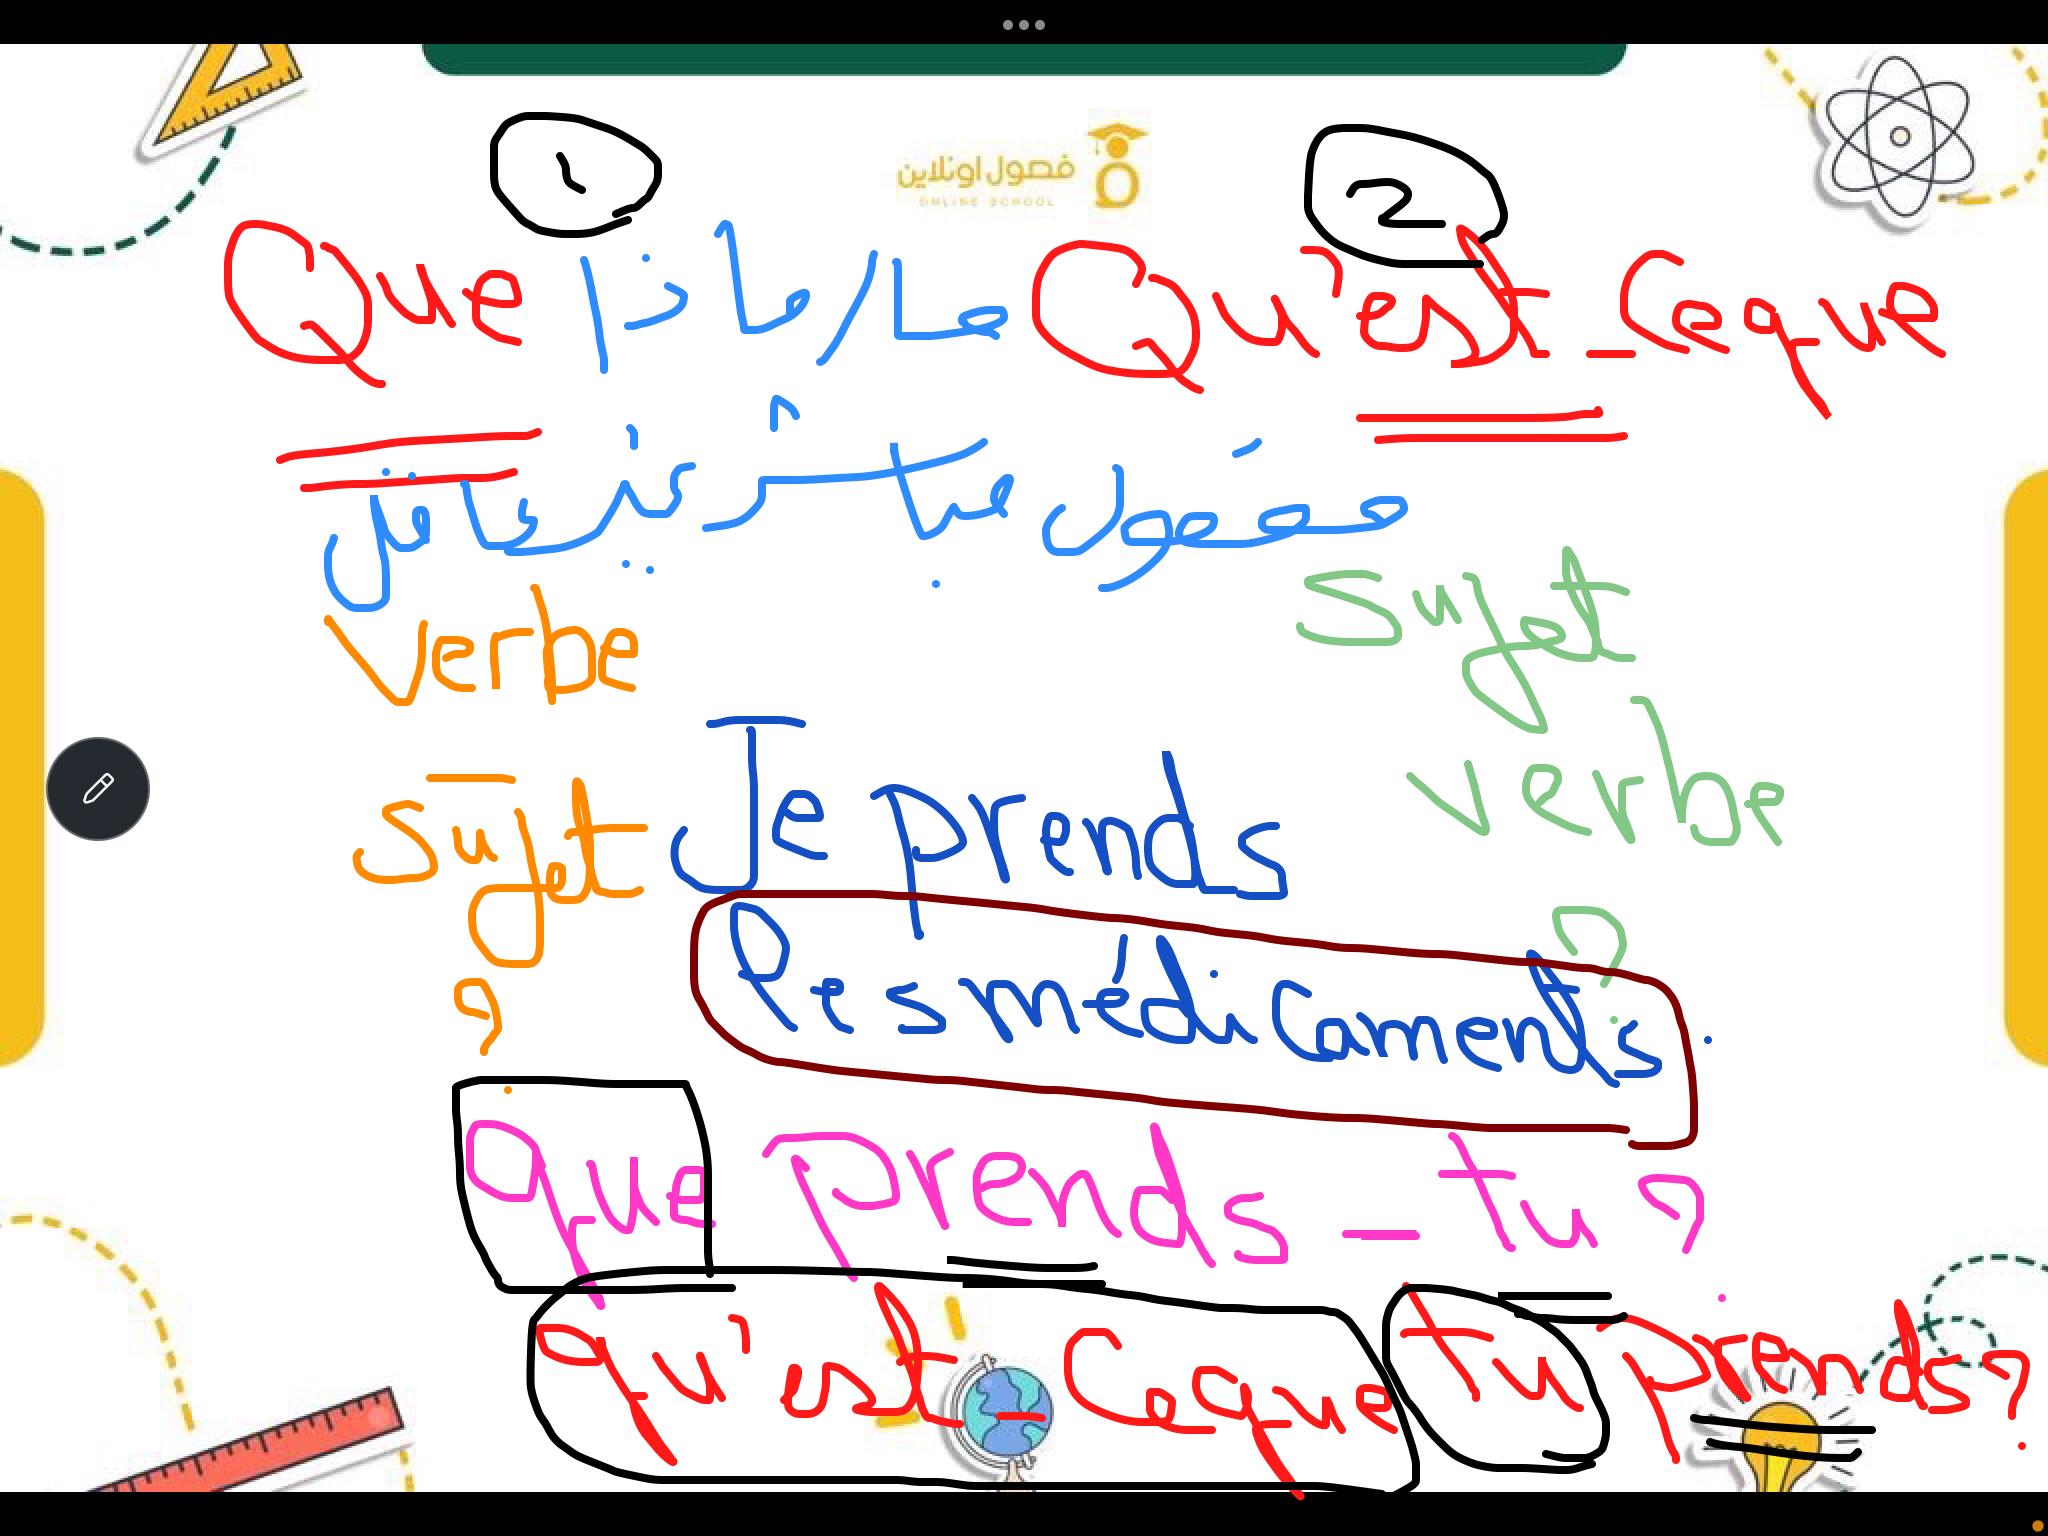 1
2
فصول اونلاين
ONLINE SCHOOL
Que ما / ماذا Qu'est-ce que
مفعول مباشر غير عاقل
Verbe
- Sujet
?
Sujet
verbe
?
Je prends
les médicaments.
que prends-tu ?
qu'est-ce que tu prends ?